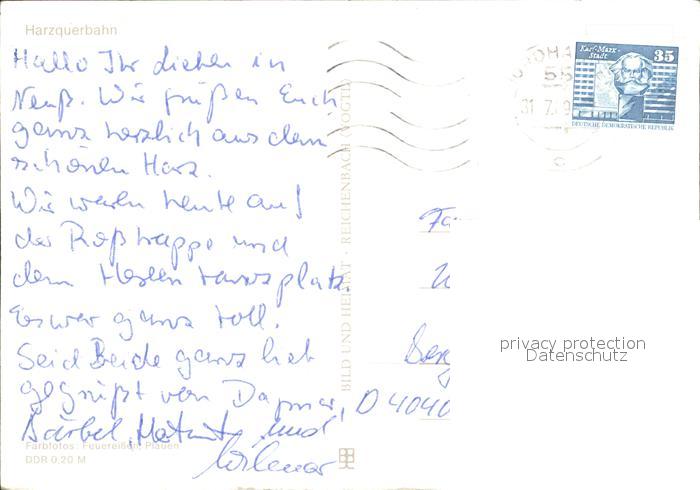 Harzquerbahn
Hallo Ihr Lieben in
Neuß. Wir grüßen Euch
ganz herzlich aus dem
schönen Harz.
Wir waren heute auf
der Roßtrappe und
dem Hexentanzplatz.
Es war ganz toll.
Seid Beide ganz lieb
gegrüßt von Dagmar,
Bärbel, und
Farbfotos: Feuereißen, Plauen
DDR 0,20 M
BILD UND HEIMAT · REICHENBACH (VOGTL)
55
31.7.
Karl-Marx-
Stadt
35
DEUTSCHE DEMOKRATISCHE REPUBLIK
D 4040
privacy protection
Datenschutz